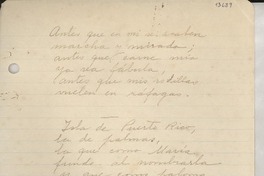 13689
Antes que en mí se acaben
marcha y mirada;
antes que carne mía
ya sea fábula,
antes que mis rodillas
vuelen en ráfagas.
Isla de Puerto Rico,
la de palmas,
la que como María
funde al nombrarla